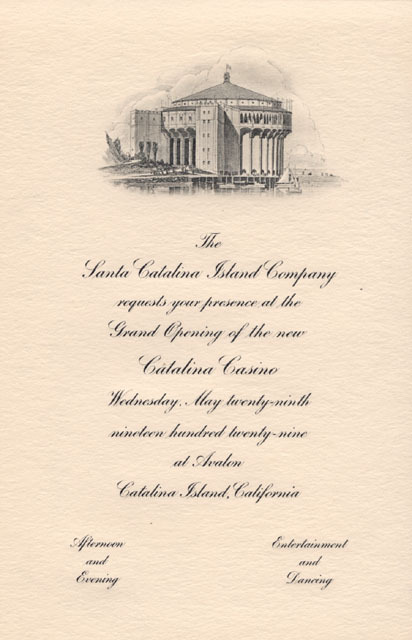 The
Santa Catalina Island Company
requests your presence at the
Grand Opening of the new
Catalina Casino
Wednesday, May twenty-ninth
nineteen hundred twenty-nine
at Avalon
Catalina Island, California
Afternoon
and
Evening
Entertainment
and
Dancing